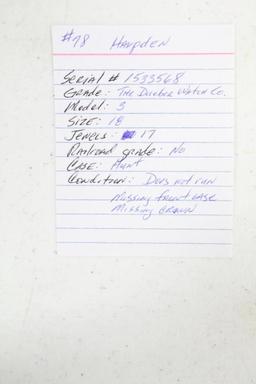 #78 Hampden
Serial # 1533568
Grade: The Dueber Watch Co.
Model: 3
Size: 18
Jewels: 17
Railroad grade: No
Case: Hunt
Condition: Does not run
Missing front case
Missing crown